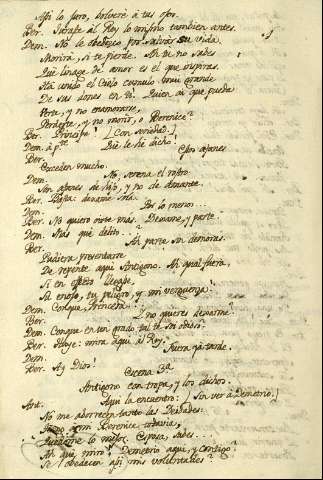 Assi lo juro, bolveré à tus ojos.
Ber. Juraste al Rey lo mismo tambien antes.
Dem. No le obedezco por salvar su vida.
Morirá, si te pierde. Ah tu no sabes
Qué linage de amor es el que inspiras.
Ha unido el Cielo cumulo tan grande
De sus dones en tí. Quien ai que pueda
Verte, y no enamorarse,
Perderte, y no morir, o Berenice?
Ber. Principe! [Con seriedad.]
Dem. à pte. Qué le he dicho!
Ber. Essos afanes
Exceden mucho.
Dem. No, serena el rostro.
Son afanes de hijo, y no de amante.
Ber. Basta: dexame sola.
Dem. Por lo menos...
Ber. No quiero oirte mas. Dexame, y parte.
Dem. Mas qué delito..?
Ber. Ah parte sin demoras.
Pudiera presentarse
De repente aqui Antigono. Ah qual fuera,
Si en efecto llegase,
Su enojo, tu peligro, y mi verguenza!
Dem. Conque, Princesa!
Ber. ¿no quieres dexarme?
Dem. Conque en un grado tal te soi odioso.
Ber. Huye: mira aqui al Rey.
Dem. Fuera ya tarde.
Ber. Ay Dios!
Escena 3ª
Antigono con tropa, y los dichos.
Ant. Aqui la encuentro: [Sin ver à Demetrio.]
No me aborrecen tanto las Deidades:
Tengo mi Berenice todavia,
lo mejor. Esposa, sabes...
Ah qué miro! Demetrio aqui, y contigo?
Se obedecen assi mis voluntades?